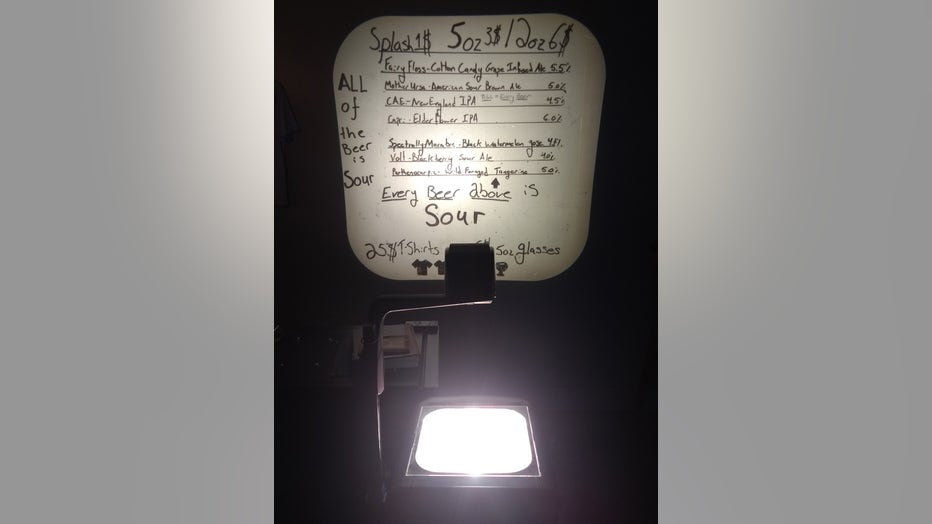 Splash 1$ 5oz 3$/12oz 6$
Fairy Floss-Cotton Candy Grape Infused Ale 5.5%
Mother Ursa-American Sour Brown Ale 5.0%
CAE-New England IPA 4.5%
Elderflower IPA 6.0%
Black Watermelon gose 4.8%
Volt-Blackberry Sour Ale 4.0%
Foraged Tangerine 5.0%
Every Beer above is
Sour
ALL
of
the
Beer
is
Sour
25$ T-Shirts $ 5oz glasses